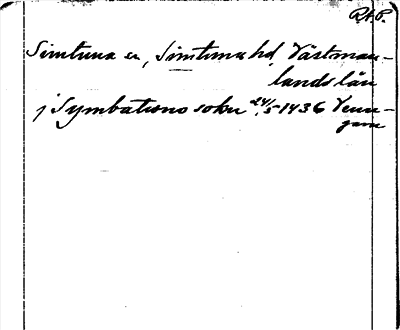 Rt. P.
Simtuna sn, Simtuna hd, Västman-
lands län
j Symbatuno sokn 24/5 1436